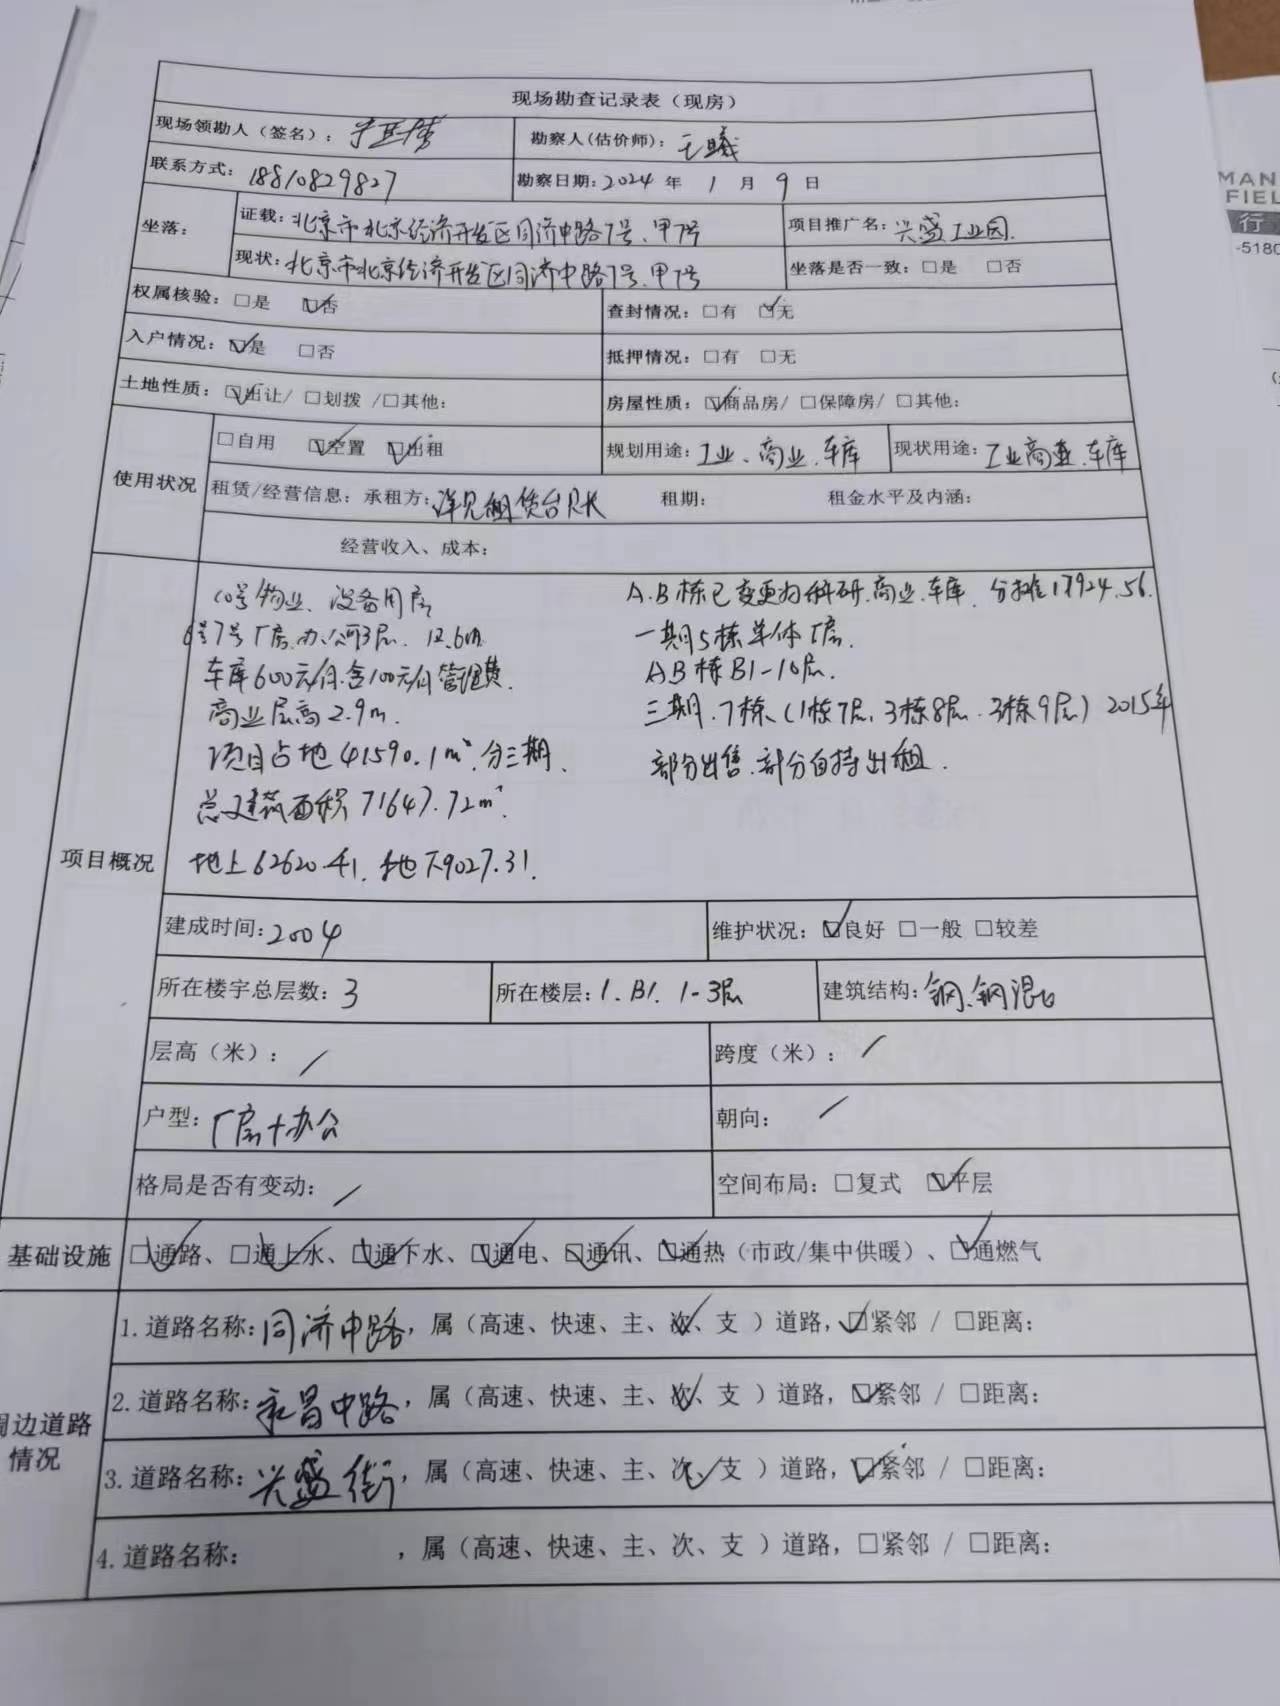 现场勘查记录表（现房）
现场领勘人（签名）：
勘察人(估价师)：王曦
联系方式：18810829827
勘察日期：2024年1月9日
坐落：
证载：北京市北京经济开发区同济中路7号、甲7号
项目推广名：兴盛工业园.
现状：北京市北京经济开发区同济中路7号、甲7号
坐落是否一致：□是 □否
权属核验：□是 ☑否
查封情况：□有 ☑无
入户情况：☑是 □否
抵押情况：□有 □无
土地性质：☑出让/ □划拨 /□其他:
房屋性质：☑商品房/ □保障房/ □其他:
使用状况
□自用 ☑空置 ☑出租
规划用途：工业、商业、车库
现状用途：工业商业、车库
租赁/经营信息：承租方：详见租赁台账 租期： 租金水平及内涵：
经营收入、成本：
项目概况
10号物业、设备用房
6号7号厂房、办公司3层、12.6m
车库600元/月.含100元/月管理费.
商业层高2.9m.
项目占地41590.1m².分三期、
总建筑面积71647.72m².
地上62620.41、地下9027.31.
A.B栋已变更为科研.商业.车库. 分摊17924.56.
一期5栋单体厂房.
AB栋B1-10层.
三期.7栋、(1栋7层、3栋8层、3栋9层) 2015年
部分出售.部分自持出租.
建成时间：2004
维护状况：☑良好 □一般 □较差
所在楼宇总层数：3
所在楼层：1、B1、1-3层
建筑结构：钢、钢混
层高（米）：/
跨度（米）：/
户型：厂房+办公
朝向：/
格局是否有变动：/
空间布局：□复式 ☑平层
基础设施
☑通路、☑通上水、☑通下水、☑通电、☑通讯、☑通热（市政/集中供暖）、☑通燃气
周边道路情况
1.道路名称：同济中路，属（高速、快速、主、次✓、支 ）道路，☑紧邻 / □距离：
2.道路名称：永昌中路，属（高速、快速、主、次✓、支 ）道路，☑紧邻 / □距离：
3.道路名称：兴盛街，属（高速、快速、主、次✓、支 ）道路，☑紧邻 / □距离：
4.道路名称： ，属（高速、快速、主、次、支 ）道路，□紧邻 / □距离：
MAN
FIEL
行
-5180